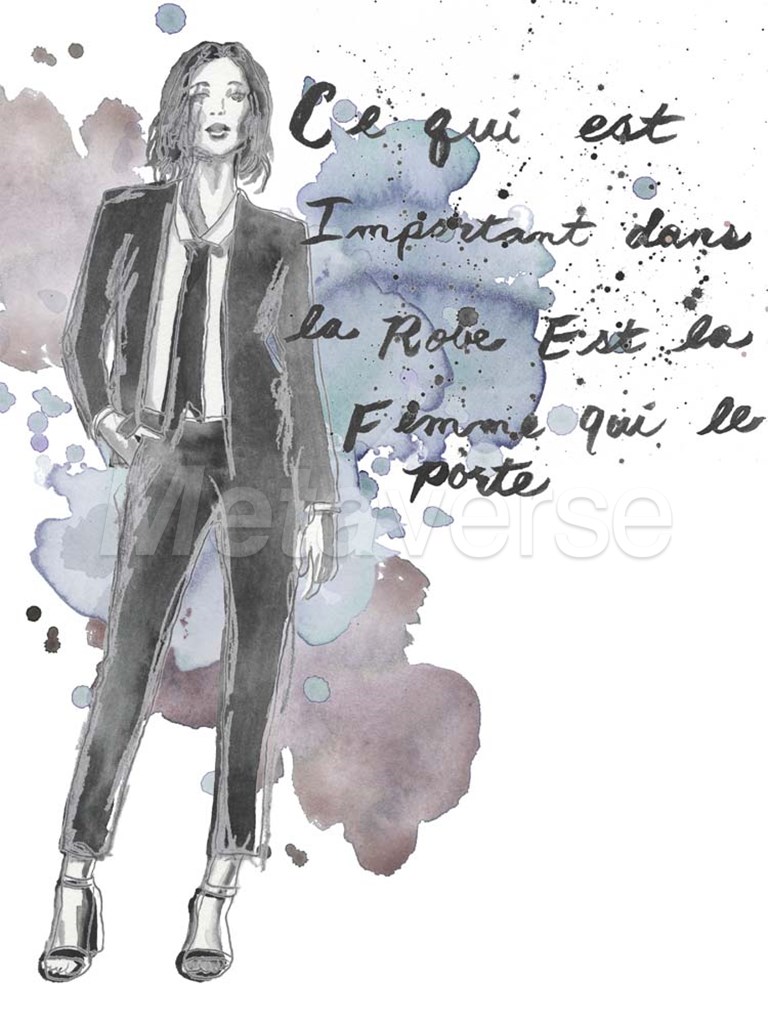 Ce qui est
Important dans
la Rove Est la
Femme qui le
porte
Metaverse